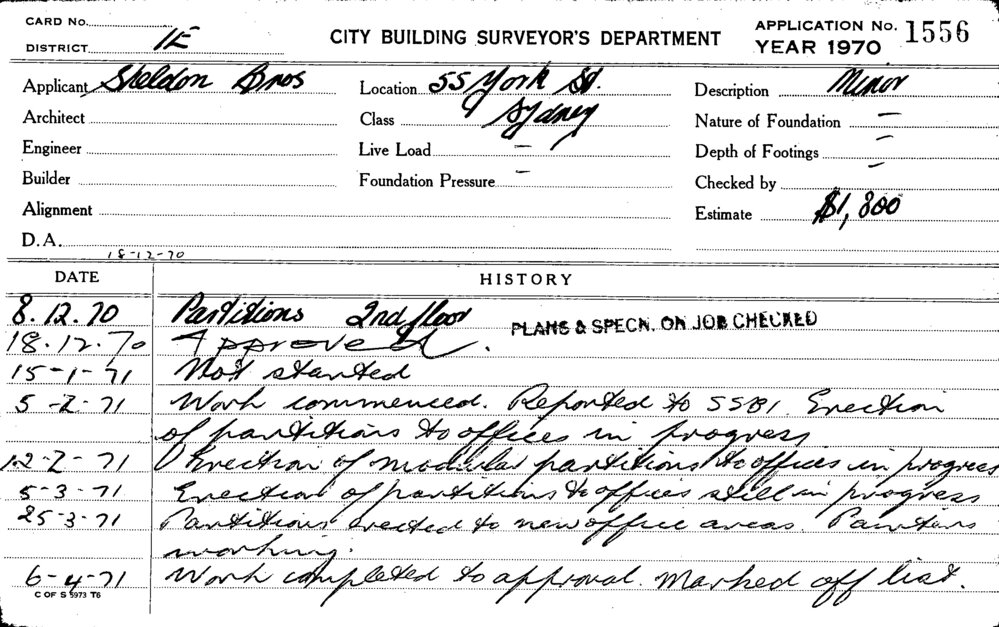 CARD No.
DISTRICT 1E
CITY BUILDING SURVEYOR'S DEPARTMENT
APPLICATION No. 1556
YEAR 1970
Applicant Sheldon Bros
Location 55 York St.
Description Minor
Architect
Class Sydney
Nature of Foundation –
Engineer
Live Load –
Depth of Footings –
Builder
Foundation Pressure –
Checked by –
Alignment
Estimate $1,800
D.A.
18-12-70
DATE HISTORY
8.12.70 Partitions 2nd floor PLANS & SPECN. ON JOB CHECKED
18.12.70 Approved.
15-1-71 Not started
5-2-71 Work commenced. Reported to SSBI. Erection
of partitions to offices in progress
12-2-71 Erection of modular partitions to offices in progress
5-3-71 Erection of partitions to offices still in progress
25-3-71 Partitions erected to new office areas. Painters
working.
6-4-71 Work completed to approval. Marked off list.
C OF S 5973 T6